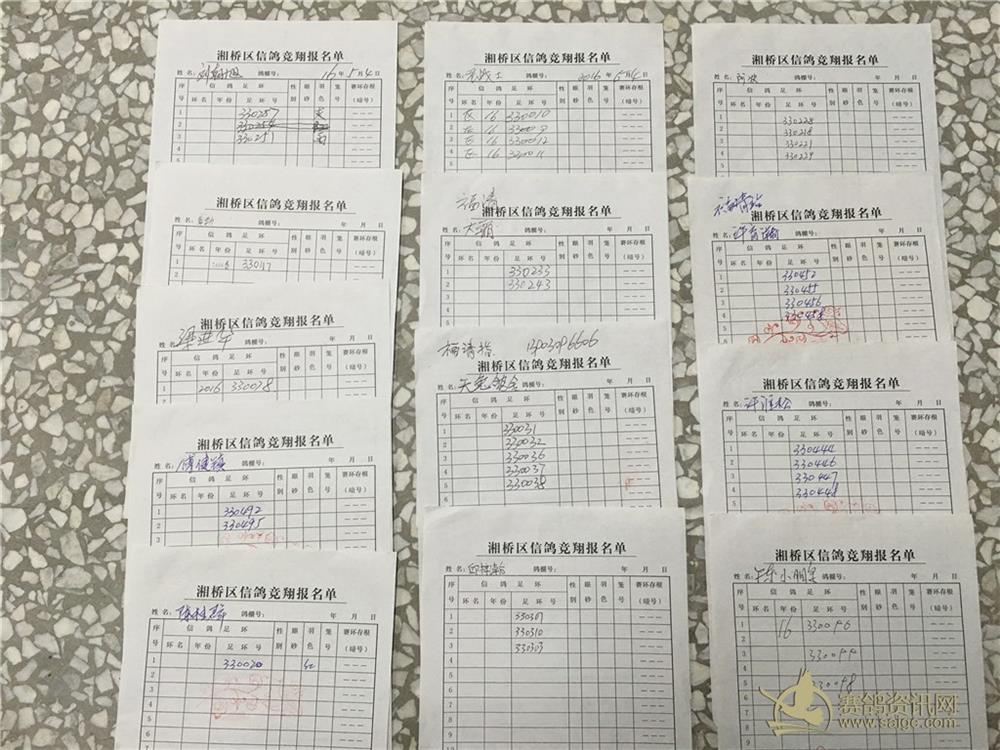 湘桥区信鸽竞翔报名单
姓名: 鸽棚号: 16年5月4日
序号 信鸽足环 性别 眼砂 羽色 笼号 赛环存根
环名 年份 足环号 (暗号)
1 330257
2 330254
3
4
湘桥区信鸽竞翔报名单
姓名: 鸽棚号: 年 月 日
序号 信鸽足环 性别 眼砂 羽色 笼号 赛环存根
环名 年份 足环号 (暗号)
1 330117
2
湘桥区信鸽竞翔报名单
姓名: 鸽棚号: 年 月 日
序号 信鸽足环 性别 眼砂 羽色 笼号 赛环存根
环名 年份 足环号 (暗号)
1 2016 330078
湘桥区信鸽竞翔报名单
姓名: 鸽棚号: 年 月 日
序号 信鸽足环 性别 眼砂 羽色 笼号 赛环存根
环名 年份 足环号 (暗号)
1 330492
2 330495
3
湘桥区信鸽竞翔报名单
姓名: 鸽棚号: 年 月 日
序号 信鸽足环 性别 眼砂 羽色 笼号 赛环存根
环名 年份 足环号 (暗号)
1 330020 红
2
3
4
5
6
7
8
9
湘桥区信鸽竞翔报名单
姓名: 鸽棚号: 2016年5月4日
序号 信鸽足环 性别 眼砂 羽色 笼号 赛环存根
环名 年份 足环号 (暗号)
1 16 330010
2 16
3 16 330012
4 16 330011
5
福清
湘桥区信鸽竞翔报名单
姓名:天翔 鸽棚号: 年 月 日
序号 信鸽足环 性别 眼砂 羽色 笼号 赛环存根
环名 年份 足环号 (暗号)
1 330233
2 330243
3
4
13903096606
湘桥区信鸽竞翔报名单
姓名: 鸽棚号: 年 月 日
序号 信鸽足环 性别 眼砂 羽色 笼号 赛环存根
环名 年份 足环号 (暗号)
1 330031
2 330032
3 330036
4 330037
5 330038
6
湘桥区信鸽竞翔报名单
姓名: 鸽棚号: 年 月 日
序号 信鸽足环 性别 眼砂 羽色 笼号 赛环存根
环名 年份 足环号 (暗号)
1 330307
2 330310
3 330303
4
5
6
7
8
9
10
湘桥区信鸽竞翔报名单
姓名: 鸽棚号: 年 月 日
序号 信鸽足环 性别 眼砂 羽色 笼号 赛环存根
环名 年份 足环号 (暗号)
1 330228
2 330218
3 330221
4 330229
5
湘桥区信鸽竞翔报名单
姓名: 鸽棚号: 年 月 日
序号 信鸽足环 性别 眼砂 羽色 笼号 赛环存根
环名 年份 足环号 (暗号)
1 330452
2 330455
3 330456
4 330458
5
湘桥区信鸽竞翔报名单
姓名:许淮松 鸽棚号: 年 月 日
序号 信鸽足环 性别 眼砂 羽色 笼号 赛环存根
环名 年份 足环号 (暗号)
1 330444
2 330446
3 330447
4 330448
5
湘桥区信鸽竞翔报名单
姓名: 鸽棚号: 年 月 日
序号 信鸽足环 性别 眼砂 羽色 笼号 赛环存根
环名 年份 足环号 (暗号)
1 16 330096
2
3 330099
4
5 330098
6
7
8
9
赛鸽资讯网
www.saigc.com